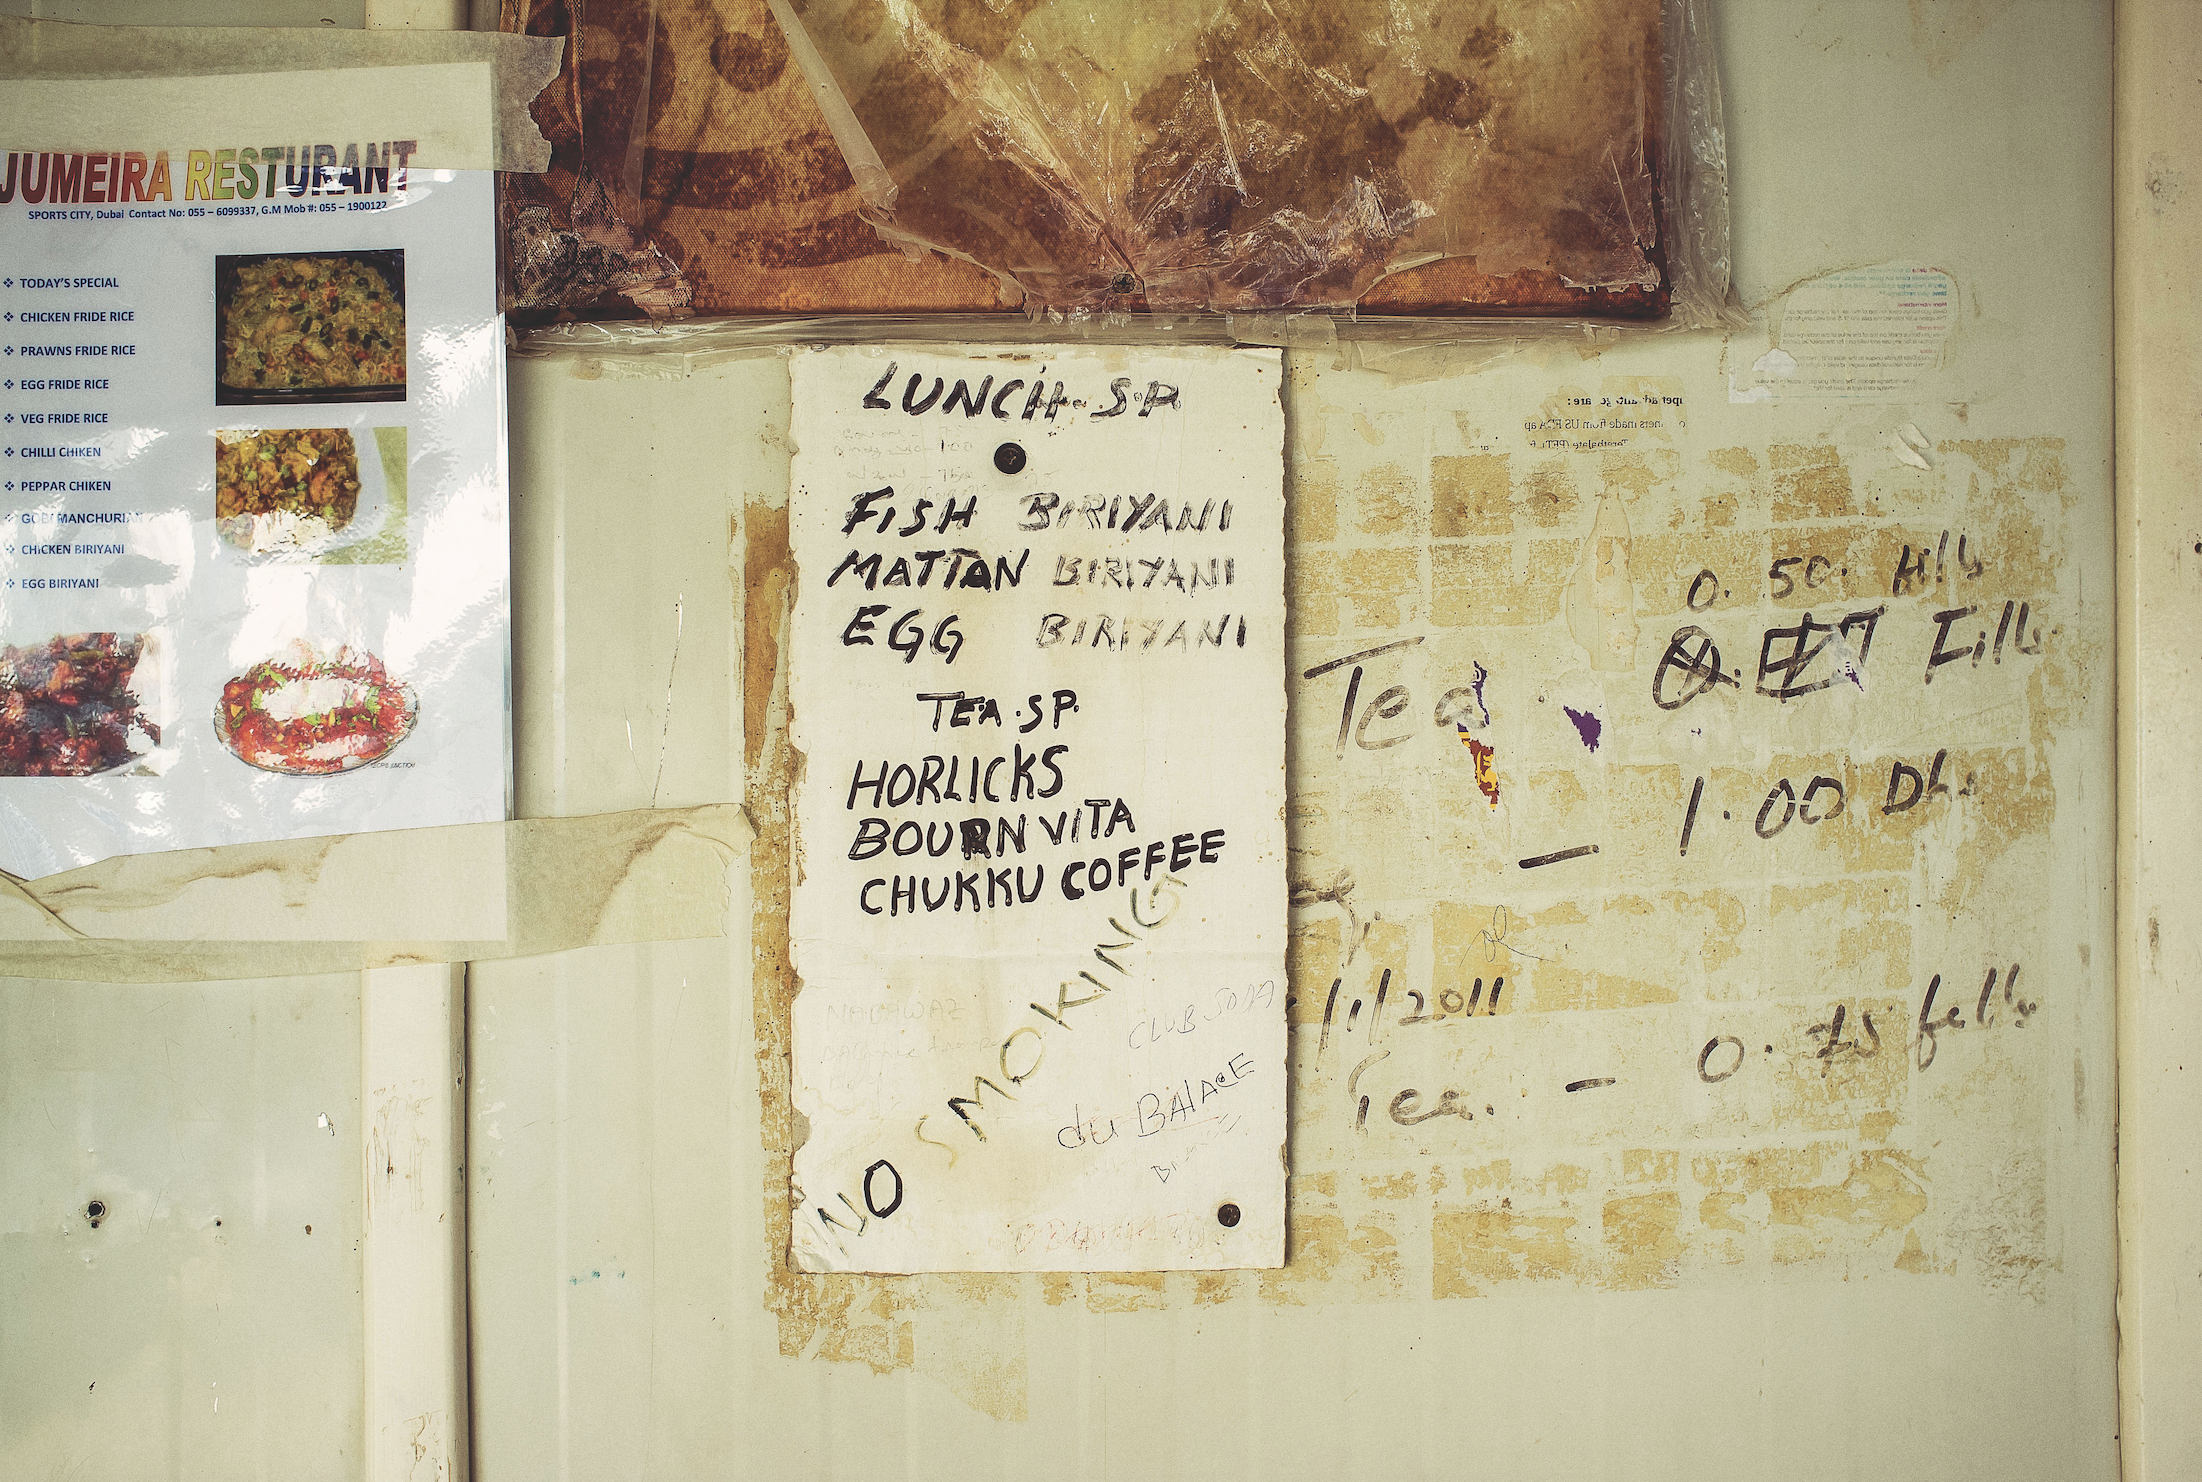 JUMEIRA RESTURANT
SPORTS CITY, Dubai Contact No: 055 – 6099337, G.M Mob #: 055 – 1900122
❖ TODAY'S SPECIAL
❖ CHICKEN FRIDE RICE
❖ PRAWNS FRIDE RICE
❖ EGG FRIDE RICE
❖ VEG FRIDE RICE
❖ CHILLI CHIKEN
❖ PEPPAR CHIKEN
❖ GOBI MANCHURIAN
❖ CHICKEN BIRIYANI
❖ EGG BIRIYANI
LUNCH. S.P.
FISH BIRIYANI
MATTAN BIRIYANI
EGG BIRIYANI
TEA. SP.
HORLICKS
BOURNVITA
CHUKKU COFFEE
NO SMOKING
CLUB SODA
du BALACE
0. 50.
Tea
1.00 Dhs
/1/2011
Tea. — 0.75